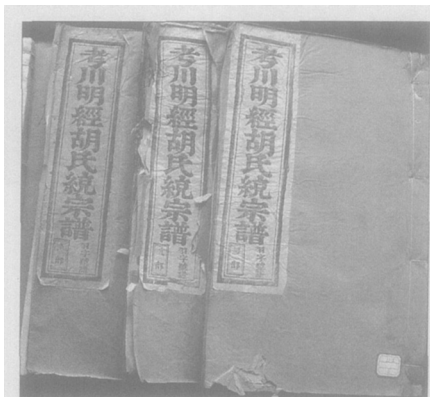 考川明經胡氏統宗譜
考川明經胡氏統宗譜
考川明經胡氏統宗譜